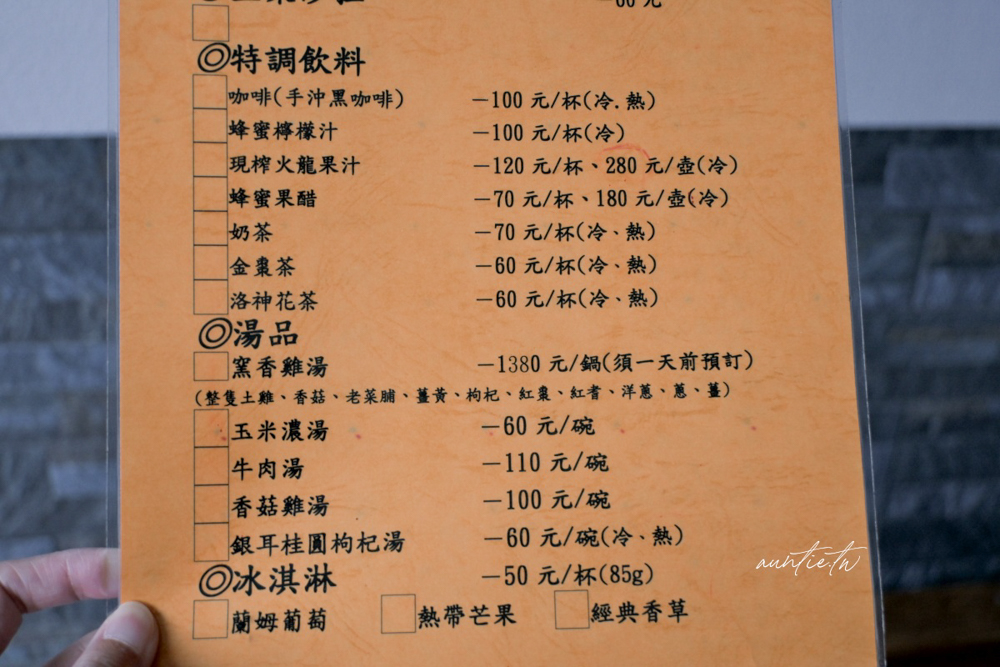 ◎特調飲料
咖啡(手沖黑咖啡) —100 元/杯(冷.熱)
蜂蜜檸檬汁 —100 元/杯(冷)
現榨火龍果汁 —120 元/杯、280 元/壺(冷)
蜂蜜果醋 —70 元/杯、180 元/壺(冷)
奶茶 —70 元/杯(冷、熱)
金棗茶 —60 元/杯(冷、熱)
洛神花茶 —60 元/杯(冷、熱)
◎湯品
窯香雞湯 —1380 元/鍋(須一天前預訂)
(整隻土雞、香菇、老菜脯、薑黃、枸杞、紅棗、紅耆、洋蔥、蔥、薑)
玉米濃湯 —60 元/碗
牛肉湯 —110 元/碗
香菇雞湯 —100 元/碗
銀耳桂圓枸杞湯 —60 元/碗(冷、熱)
◎冰淇淋 —50 元/杯(85g)
蘭姆葡萄 熱帶芒果 經典香草
auntie.tw